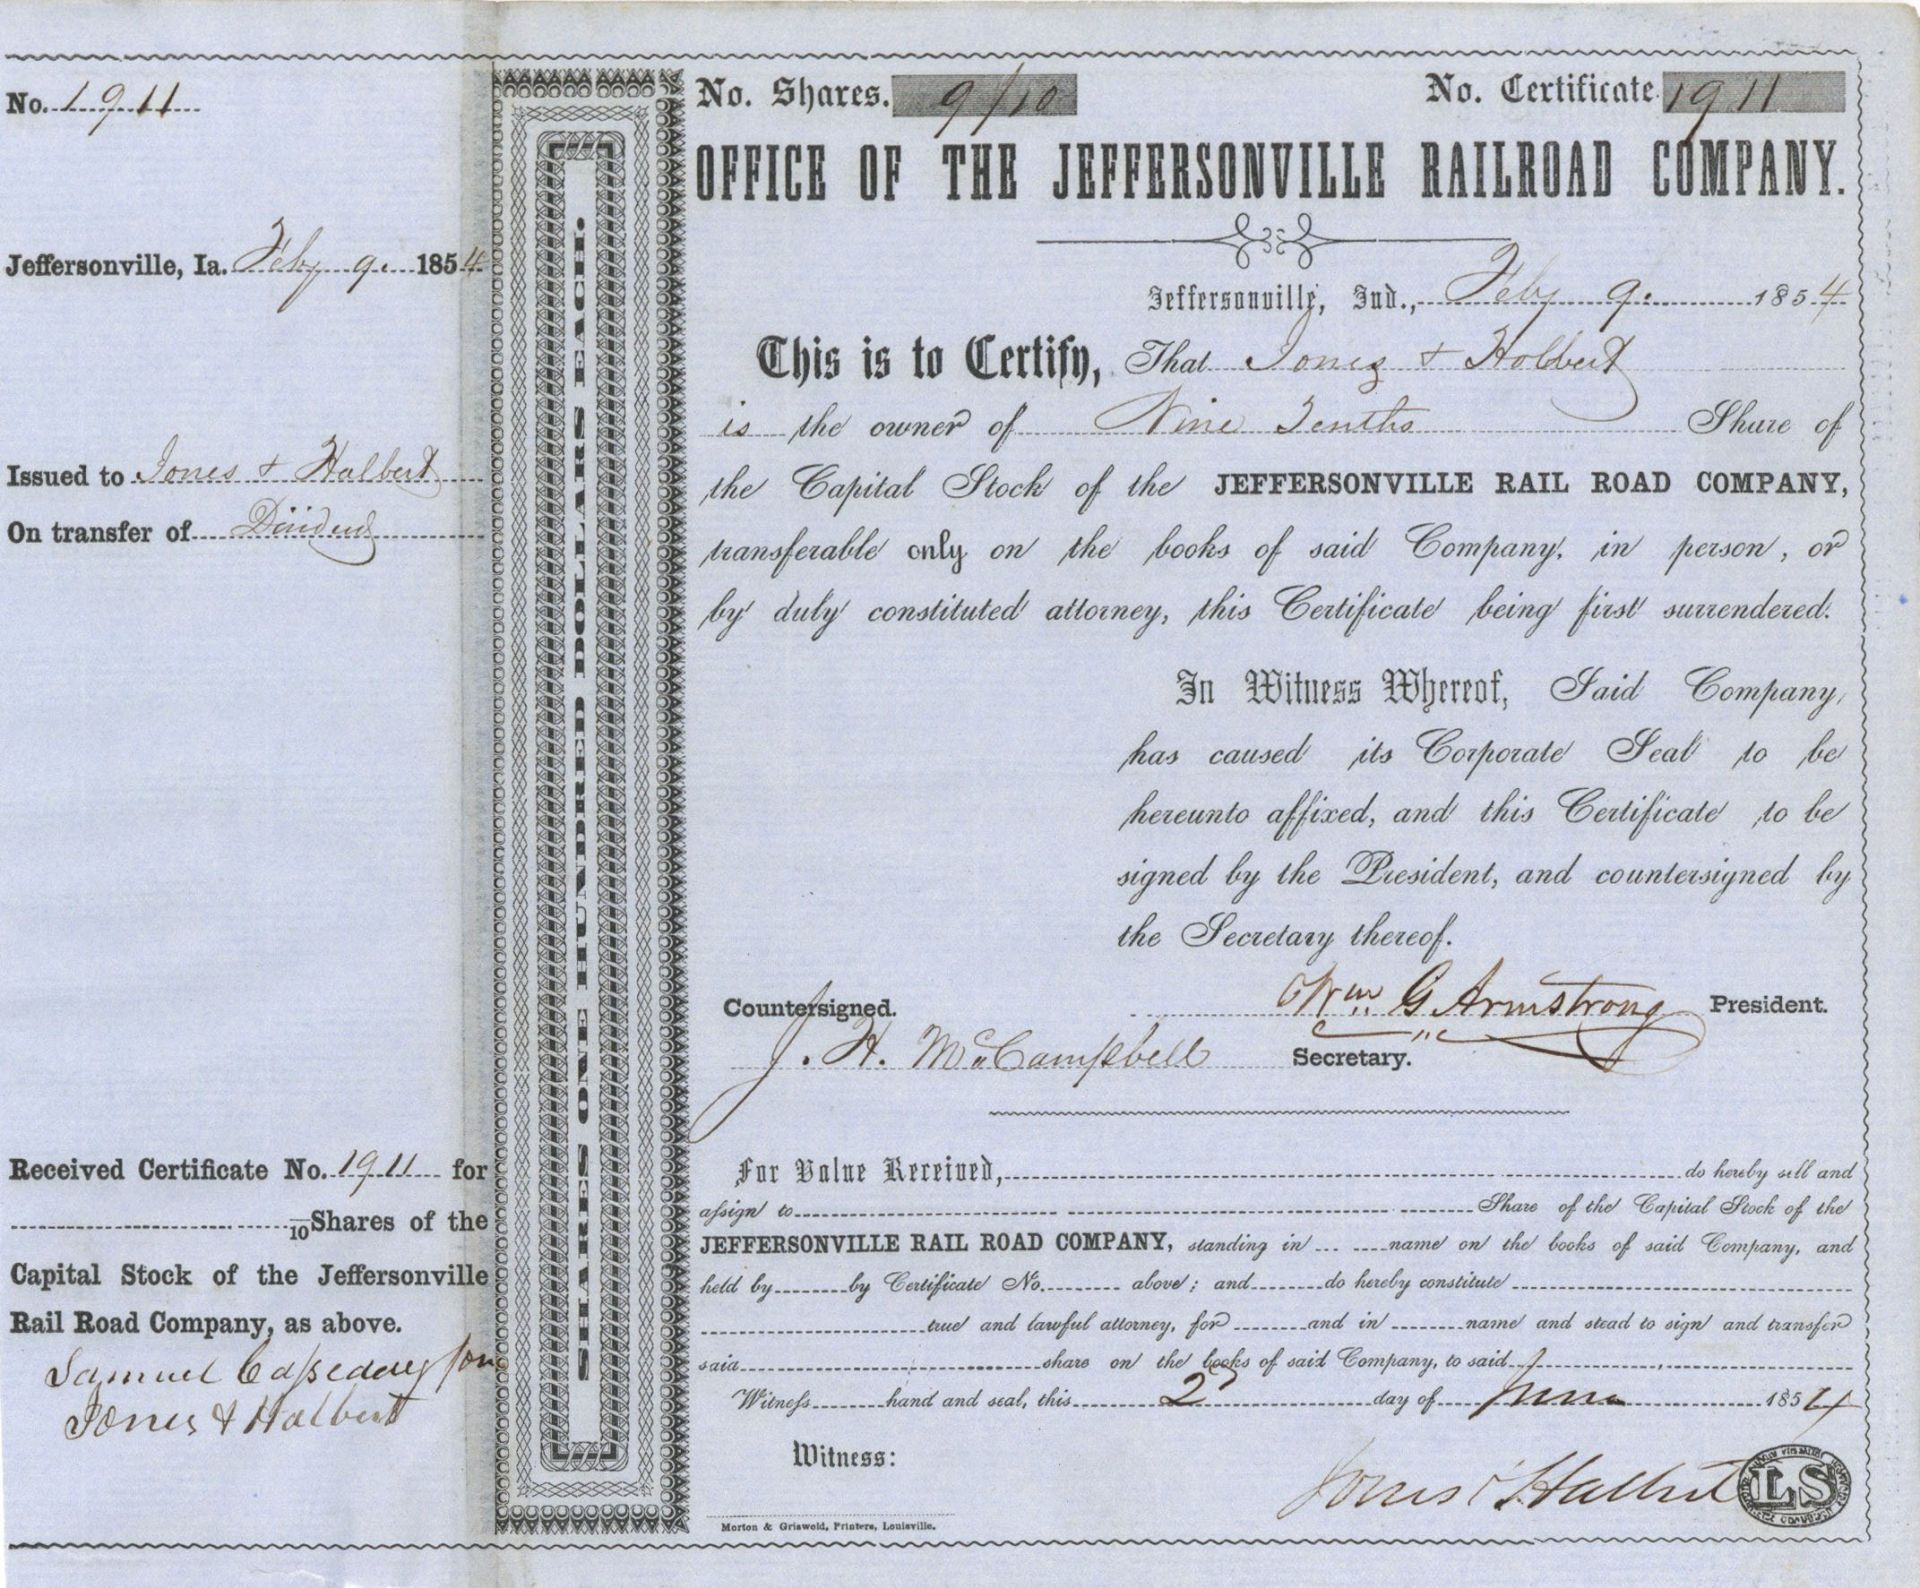 No. 1911
Jeffersonville, Ia. Feby 9. 1854
Issued to Jones & Halbert
On transfer of Dividend
Received Certificate No. 1911 for
/10 Shares of the
Capital Stock of the Jeffersonville
Rail Road Company, as above.
Samuel Casseday for
Jones & Halbert
SHARES ONE HUNDRED DOLLARS EACH.
No. Shares. 9/10 No. Certificate 1911
OFFICE OF THE JEFFERSONVILLE RAILROAD COMPANY.
Jeffersonville, Ind., Feby 9. 1854
This is to Certify, That Jones & Holbert
is the owner of Nine Tenths Share of
the Capital Stock of the JEFFERSONVILLE RAIL ROAD COMPANY,
transferable only on the books of said Company, in person, or
by duly constituted attorney, this Certificate being first surrendered.
In Witness Whereof, Said Company,
has caused its Corporate Seal to be
hereunto affixed, and this Certificate to be
signed by the President, and countersigned by
the Secretary thereof.
Wm G Armstrong President.
Countersigned.
J. H. McCampbell Secretary.
For Value Received, do hereby sell and
assign to Share of the Capital Stock of the
JEFFERSONVILLE RAIL ROAD COMPANY, standing in name on the books of said Company, and
held by by Certificate No. above; and do hereby constitute
true and lawful attorney, for and in name and stead to sign and transfer
said share on the books of said Company, to said
Witness hand and seal, this 2 day of June 1854
Witness:
Jones & Halbert LS
Morton & Griswold, Printers, Louisville.